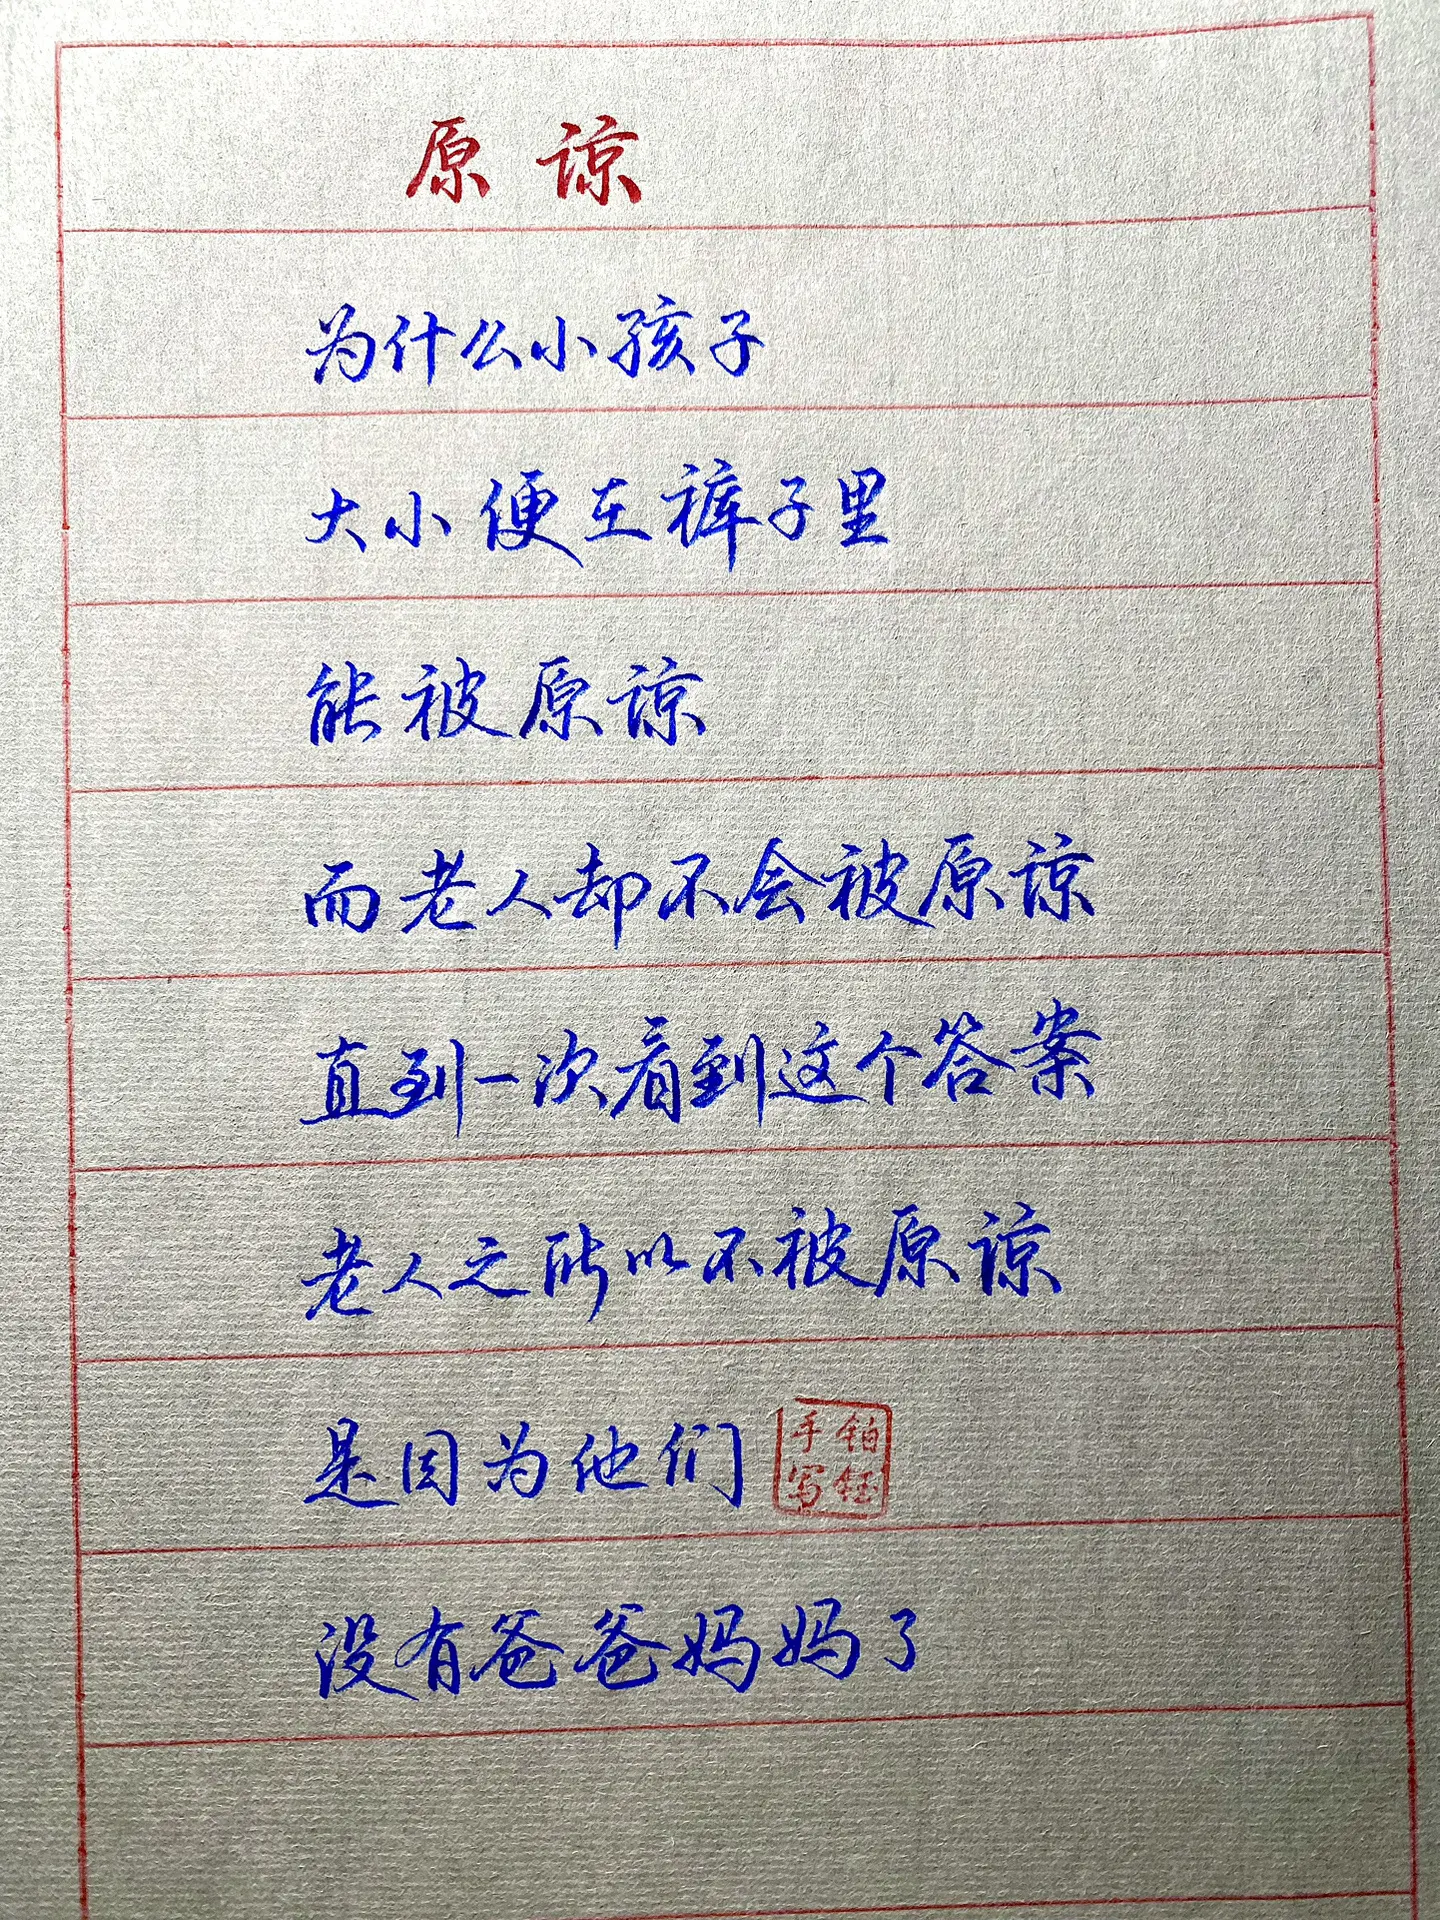 原谅
为什么小孩子
大小便在裤子里
能被原谅
而老人却不会被原谅
直到一次看到这个答案
老人之所以不被原谅
是因为他们
铂钰
手写
没有爸爸妈妈了